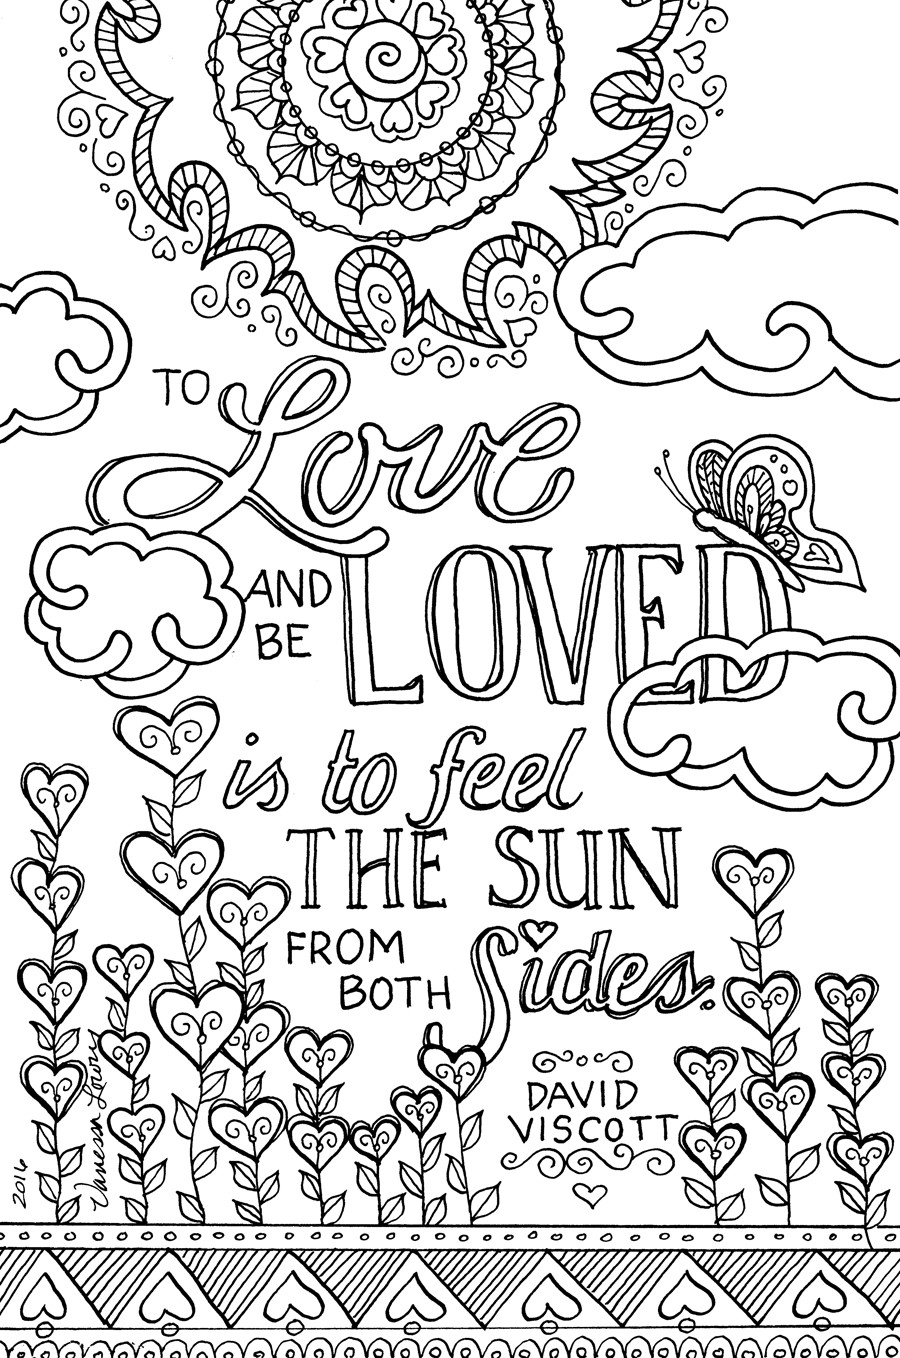 TO Love
AND BE LOVED
is to feel
THE SUN
FROM BOTH Sides.
DAVID
VISCOTT
2016
Vanessa